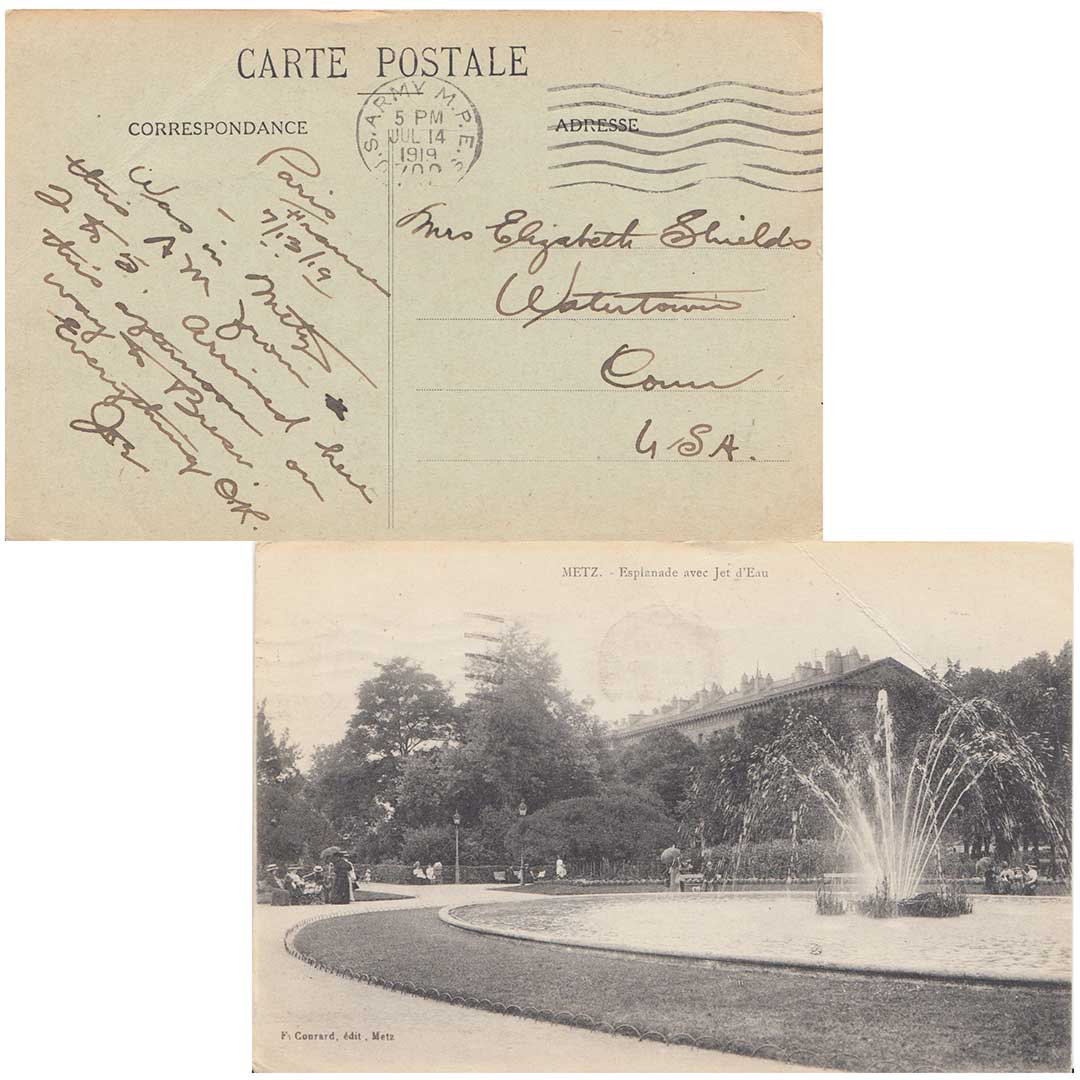 CARTE POSTALE
CORRESPONDANCE
ADRESSE
U.S. ARMY M.P.E.S.
5 PM
JUL 14
1919
700
Paris
France
7/13/19
Was in Metz
this A M from
2 to 5. Arrived here
this afternoon on
way to Brest.
Everything O.K.
Joe
Mrs Elizabeth Shields
Watertown
Conn
USA.
METZ. - Esplanade avec Jet d'Eau
Fs Conrard, édit, Metz